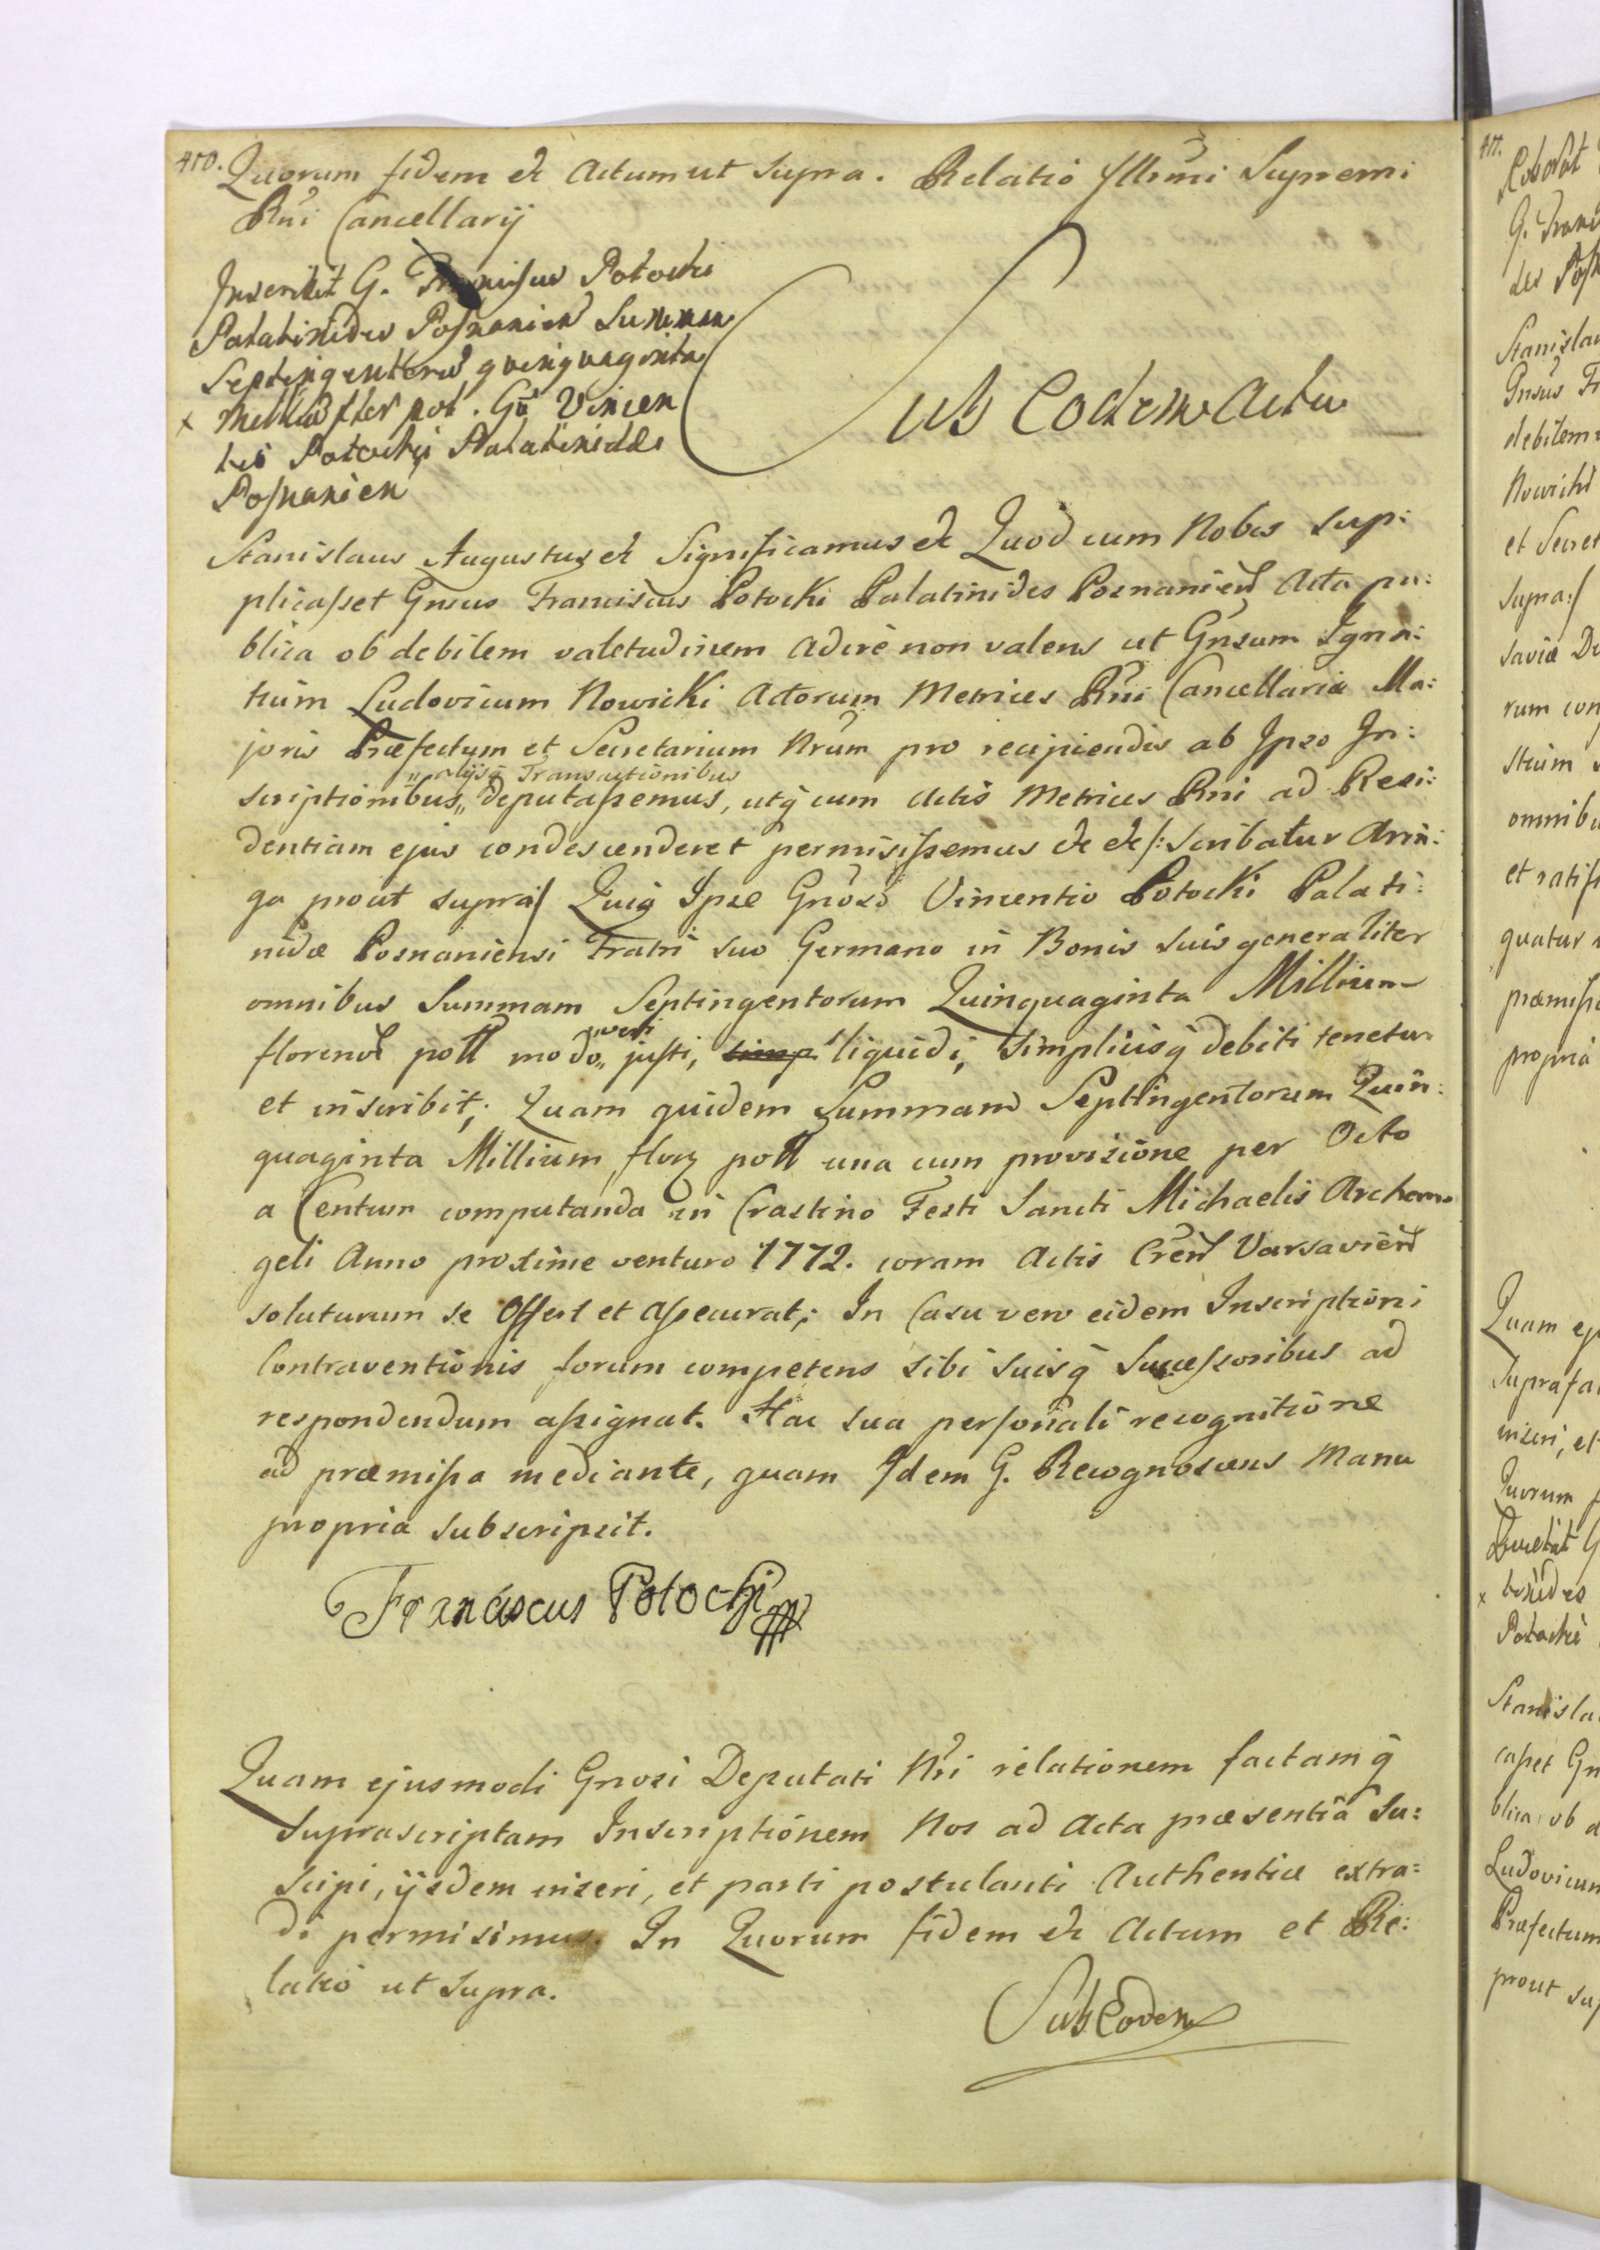 410. Quorum fidem et Actum ut supra. Relatio Illrmi Supremi
Rni Cancellarij
Inscribit G. Potocki
Palatinides Posnanien Summam
Septingentorum quinquaginta
x Millium flor pol. Go Vincen
tio Potocki Palatinidae
Posnanien
Sub Eodem Actu
Stanislaus Augustus et Significamus et Quod cum Nobis sup:
plicasset Gnsus Franciscus Potocki Palatinides Posnanien Acta pu:
blica ob debilem valetudinem adire non valens ut Gnsum Igna:
tium Ludovicum Nowicki Actorum Metrices Rni Cancellariæ Ma:
joris Præfectum et Secretarium Nrum pro recipiendis ab Ipso In:
„alijsq Transactionibus
scriptionibus„ deputassemus, utq cum Actis Metrices Rni ad Resi:
dentiam ejus condescenderet permisissemus et et /: Scribatur Arin:
ga prout supra :/ Quiq Ipse Gnoso Vincentio Potocki Palati:
nidæ Posnaniensi Fratri suo Germano in Bonis suis generaliter
omnibus Summam Septingentorum Quinquaginta Millium
florenor poll modo „veri justi, simp liquidi, simplicisq debiti tenetur
et inscribit; Quam quidem Summam Septingentorum Quin:
quaginta Millium flor poll una cum provisione per Octo
a Centum computanda in Crastino Festi Sancti Michaelis Archan:
geli Anno proxime venturo 1772. coram Actis Cren Varsavien
soluturum se Offert et assecurat; In Casu vero eidem Inscriptioni
Contraventionis forum competens sibi suisq Successoribus ad
respondendum assignat. Hac sua personali recognitione
ad præmissa mediante, quam Idem G. Recognoscens Manu
propria subscripsit.
Franciscus Potocki
Quam ejusmodi Gnosi Deputati Nri relationem factamq
suprascriptam Inscriptionem Nos ad Acta præsentia su:
scipi, ijsdem inseri, et parti postulanti Authentice extra:
di permisimus. In Quorum fidem et Actum et Re:
latio ut supra.
Sub Eodem
411.
G.
Stanislau
Gnsus Fr
debilem
Nowicki
et Secret
supra :/
saviæ
rum con
omnibu
et ratifi
quatur
præmissa
propria
Quam ej
suprafa
inseri, et
Quorum
x
Potocki
Stanisla
casset Gn
blica ob d
Ludovicum
Præfectum
prout sup